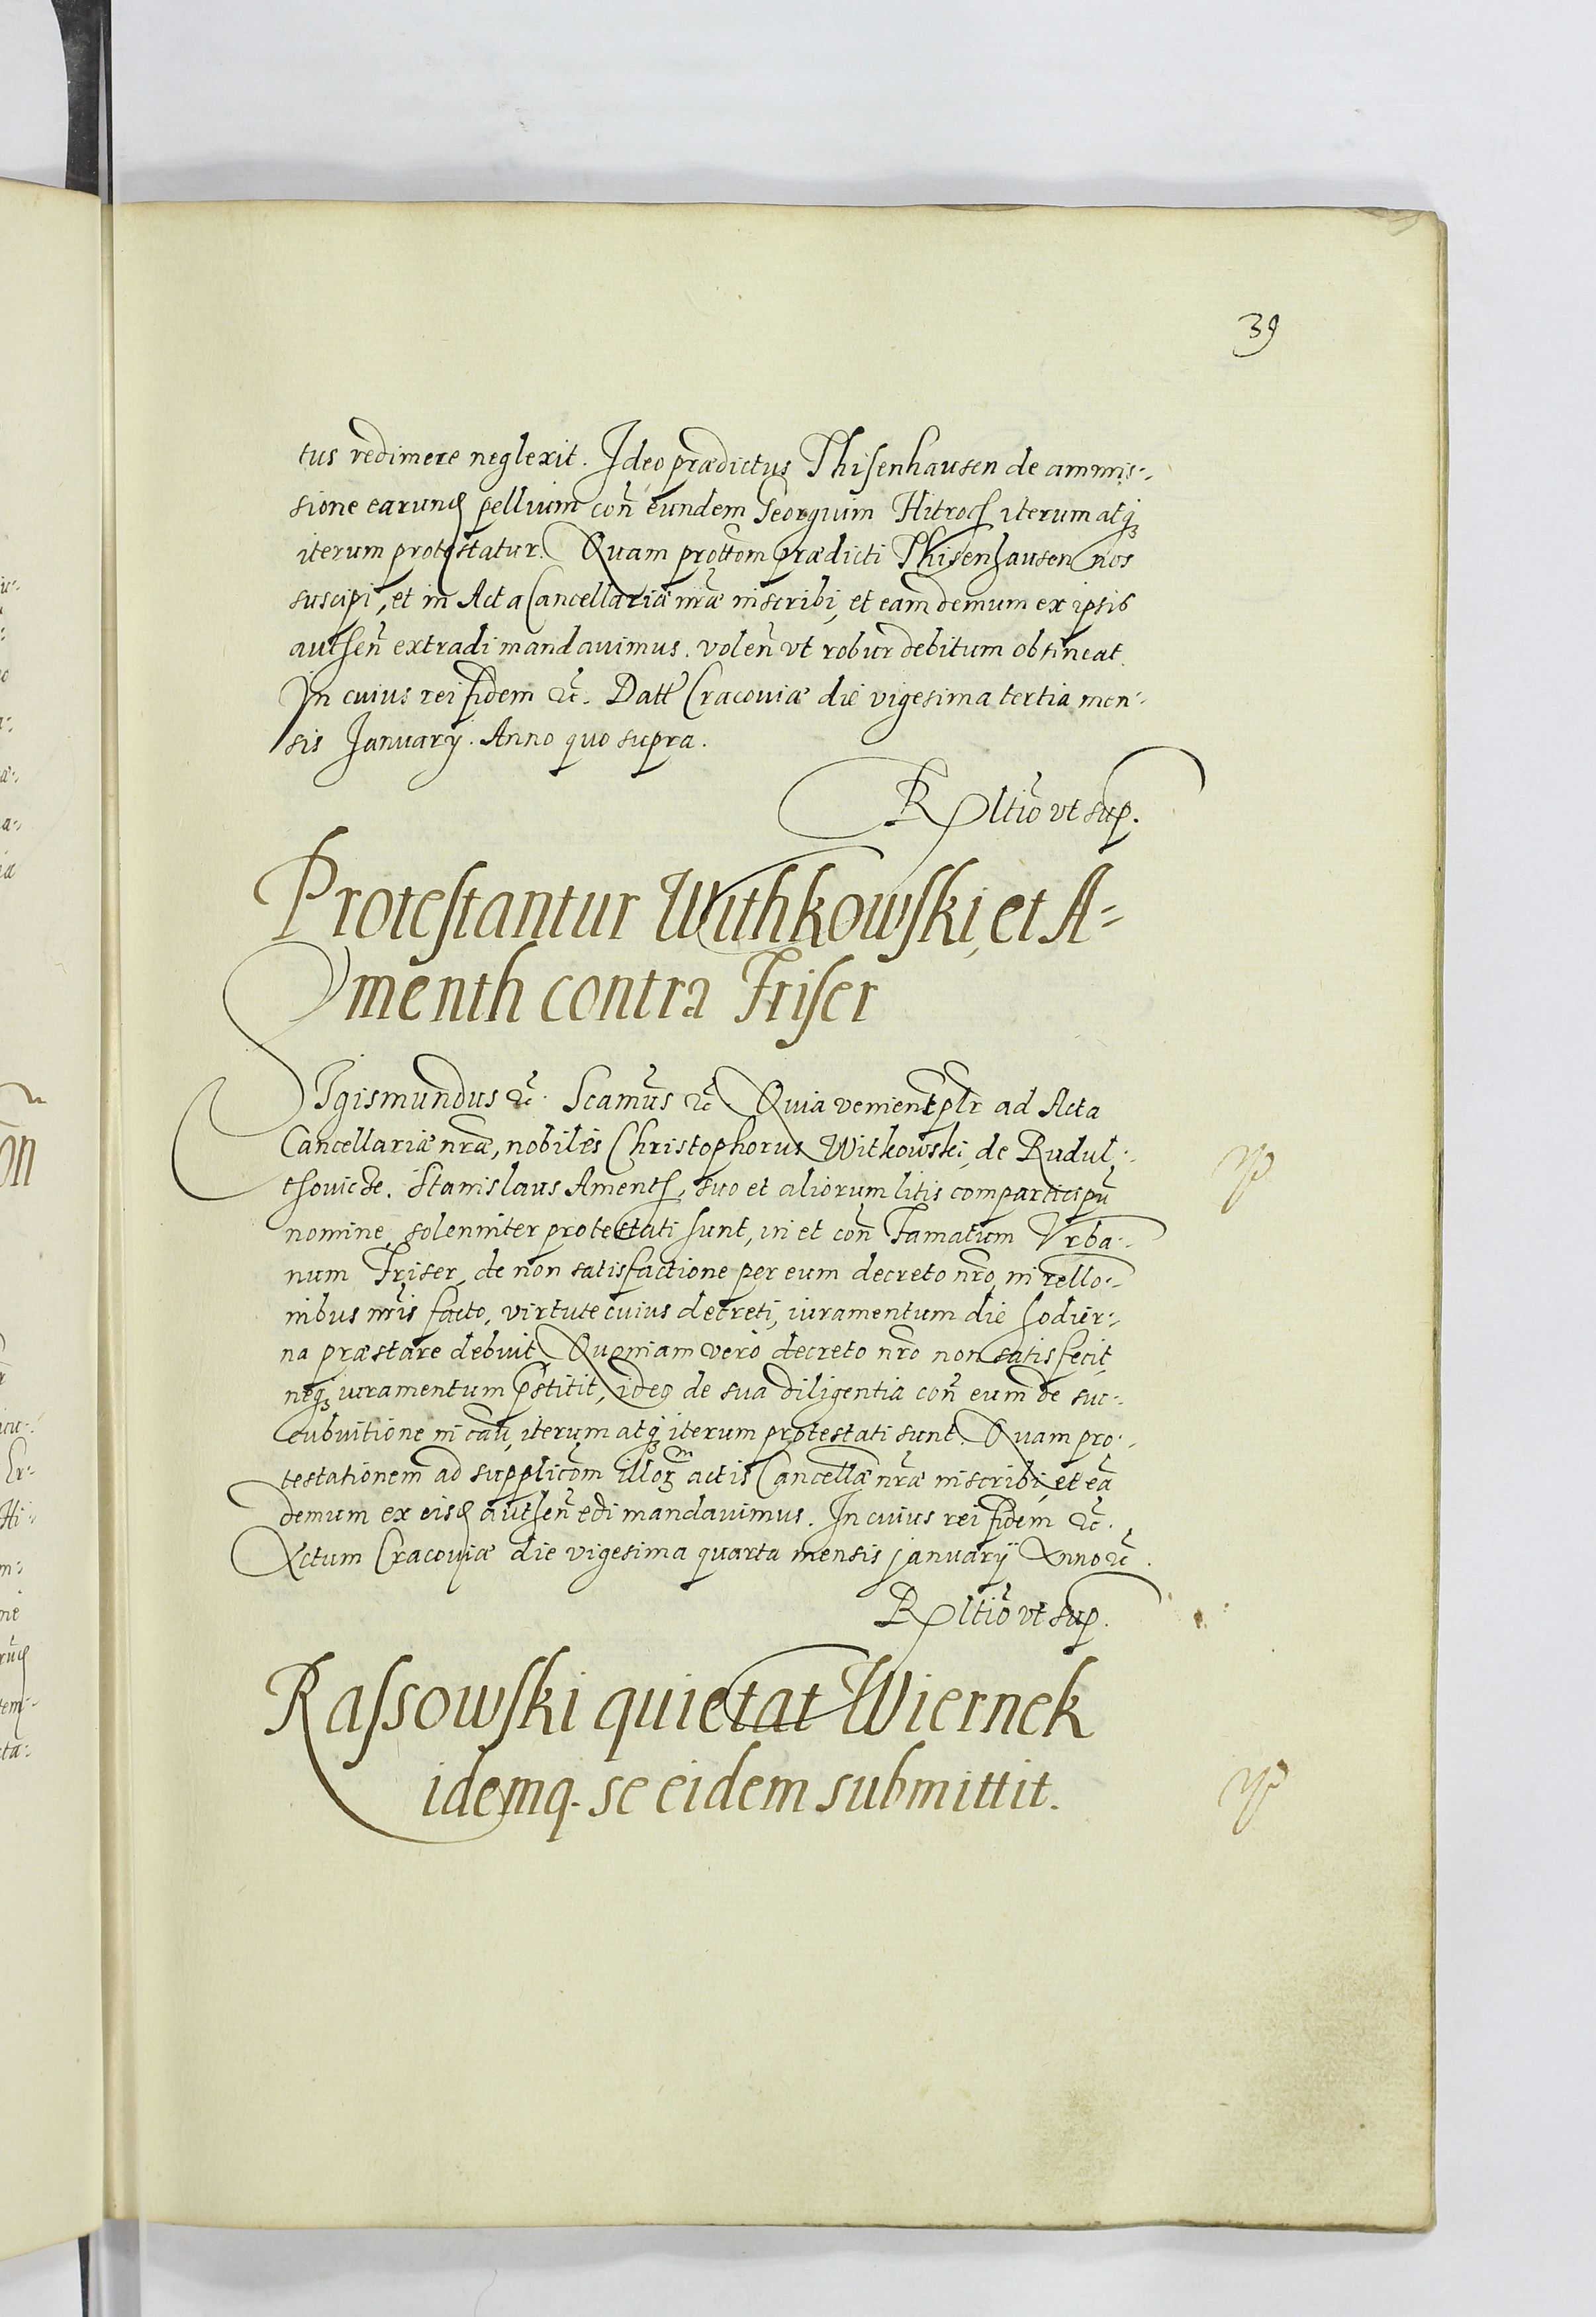 39
tus redimere neglexit. Ideo prædictus Thisenhausen de ammis-
sione earund pellium con̄ eundem Georgium Hitroch iterum atq;
iterum protestatur. Quam prottōm prædicti Thisenhausen nos
suscipi, et in Acta Cancellariæ nr̄æ inscribi, et eam demum ex ipsis
authen̄ extradi mandavimus. volen̄ vt robur debitum obtineat.
In cuius rei fidem &c̄. Datt Cracouiæ die vigesima tertia men-
sis Januarij. Anno quo supra.
R ltīo vt sup.
Protestantur Withkowski, et A=
menth contra Friser
Sigismundus &c̄. Scam̄us &c̄. Quia venient plr ad Acta
Cancellariæ nr̄æ, nobiles Christophorus Witkowski, de Rudul-
thovicze. Stanislaus Amenth, suo et aliorum litis comparticipū
nomine, solenniter protestati sunt, in et con̄ Famatum Vrba-
num Friser, de non satisfactione per eum decreto nr̄o, in rello-
nibus nr̄is facto, virtute cuius decreti, iuramentum die hodier-
na præstare debuit. Quoniam vero decreto nr̄o non satisfecit
neq; iuramentum p̄stitit, ideo de sua diligentia con̄ eum de suc-
cubuitione in cau, iterum atq; iterum protestati sunt. Quam pro-
testationem ad supplicōm illor actis Cancellæ nr̄æ inscribi, et eā
demum ex eisd authen̄ edi mandavimus. In cuius rei fidem &c̄.
Actum Cracouiæ die vigesima quarta mensis januarij Anno &c̄.
R ltīo vt sup.
Rassowski quietat Wiernek
idemq. se eidem submittit.